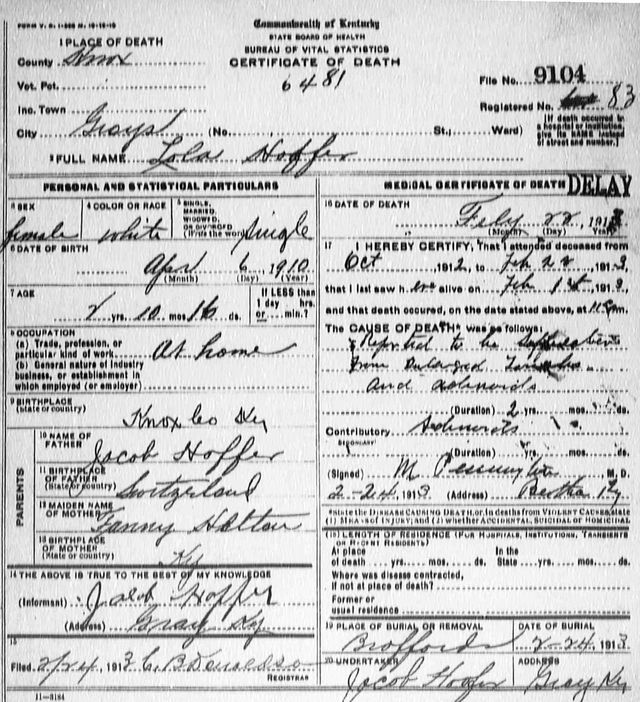 FORM V. S. 1-
Commonwealth of Kentucky
STATE BOARD OF HEALTH
BUREAU OF VITAL STATISTICS
CERTIFICATE OF DEATH
6481
1 PLACE OF DEATH
County Knox
Vot. Pct.
Inc. Town
City Grays (No. St., Ward)
File No. 9104
Registered No. 83
[If death occurred in a hospital or institution, give its NAME instead of street and number.]
2 FULL NAME Lola Hoffer
PERSONAL AND STATISTICAL PARTICULARS
3 SEX
female
4 COLOR OR RACE
white
5 SINGLE, MARRIED, WIDOWED, OR DIVORCED (Write the word) Single
6 DATE OF BIRTH
Apr 6, 1910
(Month) (Day) (Year)
7 AGE
2 yrs. 10 mos. 16 ds.
If LESS than 1 day hrs. or min.?
8 OCCUPATION
(a) Trade, profession, or particular kind of work At home
(b) General nature of industry business, or establishment in which employed (or employer)
9 BIRTHPLACE
(State or country)
Knox Co Ky
PARENTS
10 NAME OF FATHER
Jacob Hoffer
11 BIRTHPLACE OF FATHER
(State or country)
Switzerland
12 MAIDEN NAME OF MOTHER
Fanny Helton
13 BIRTHPLACE OF MOTHER
(State or country)
Ky
14 THE ABOVE IS TRUE TO THE BEST OF MY KNOWLEDGE
(Informant) Jacob Hoffer
(Address) Gray Ky
15
Filed 2/24, 1913 C. B. Donaldson
REGISTRAR
11-3184
MEDICAL CERTIFICATE OF DEATH DELAY
16 DATE OF DEATH
Feby 22 1913
(Month) (Day) (Year)
17 I HEREBY CERTIFY, That I attended deceased from
Oct, 1912, to Feb 22, 1913,
that I last saw her alive on Feb 1st, 1913,
and that death occurred, on the date stated above, at 11 Pm.
The CAUSE OF DEATH* was as follows:
Reported to be Suffocation
from Enlarged Tonsils
and adenoids
(Duration) 2 yrs. mos. ds.
Contributory Adenoids
SECONDARY
(Duration) yrs. mos. ds.
(Signed) M Pennington, M. D.
2-24, 1913 (Address) Bertha Ky
*State the DISEASE CAUSING DEATH, or, in deaths from VIOLENT CAUSES, state (1) MEANS OF INJURY; and (2) whether ACCIDENTAL, SUICIDAL OR HOMICIDAL.
18 LENGTH OF RESIDENCE (FOR HOSPITALS, INSTITUTIONS, TRANSIENTS OR RECENT RESIDENTS)
At place of death yrs. mos. ds. In the State yrs. mos. ds.
Where was disease contracted, if not at place of death?
Former or usual residence
19 PLACE OF BURIAL OR REMOVAL
Brofford
DATE OF BURIAL
2-24, 1913
20 UNDERTAKER
Jacob Hoofer
ADDRESS
Gray Ky